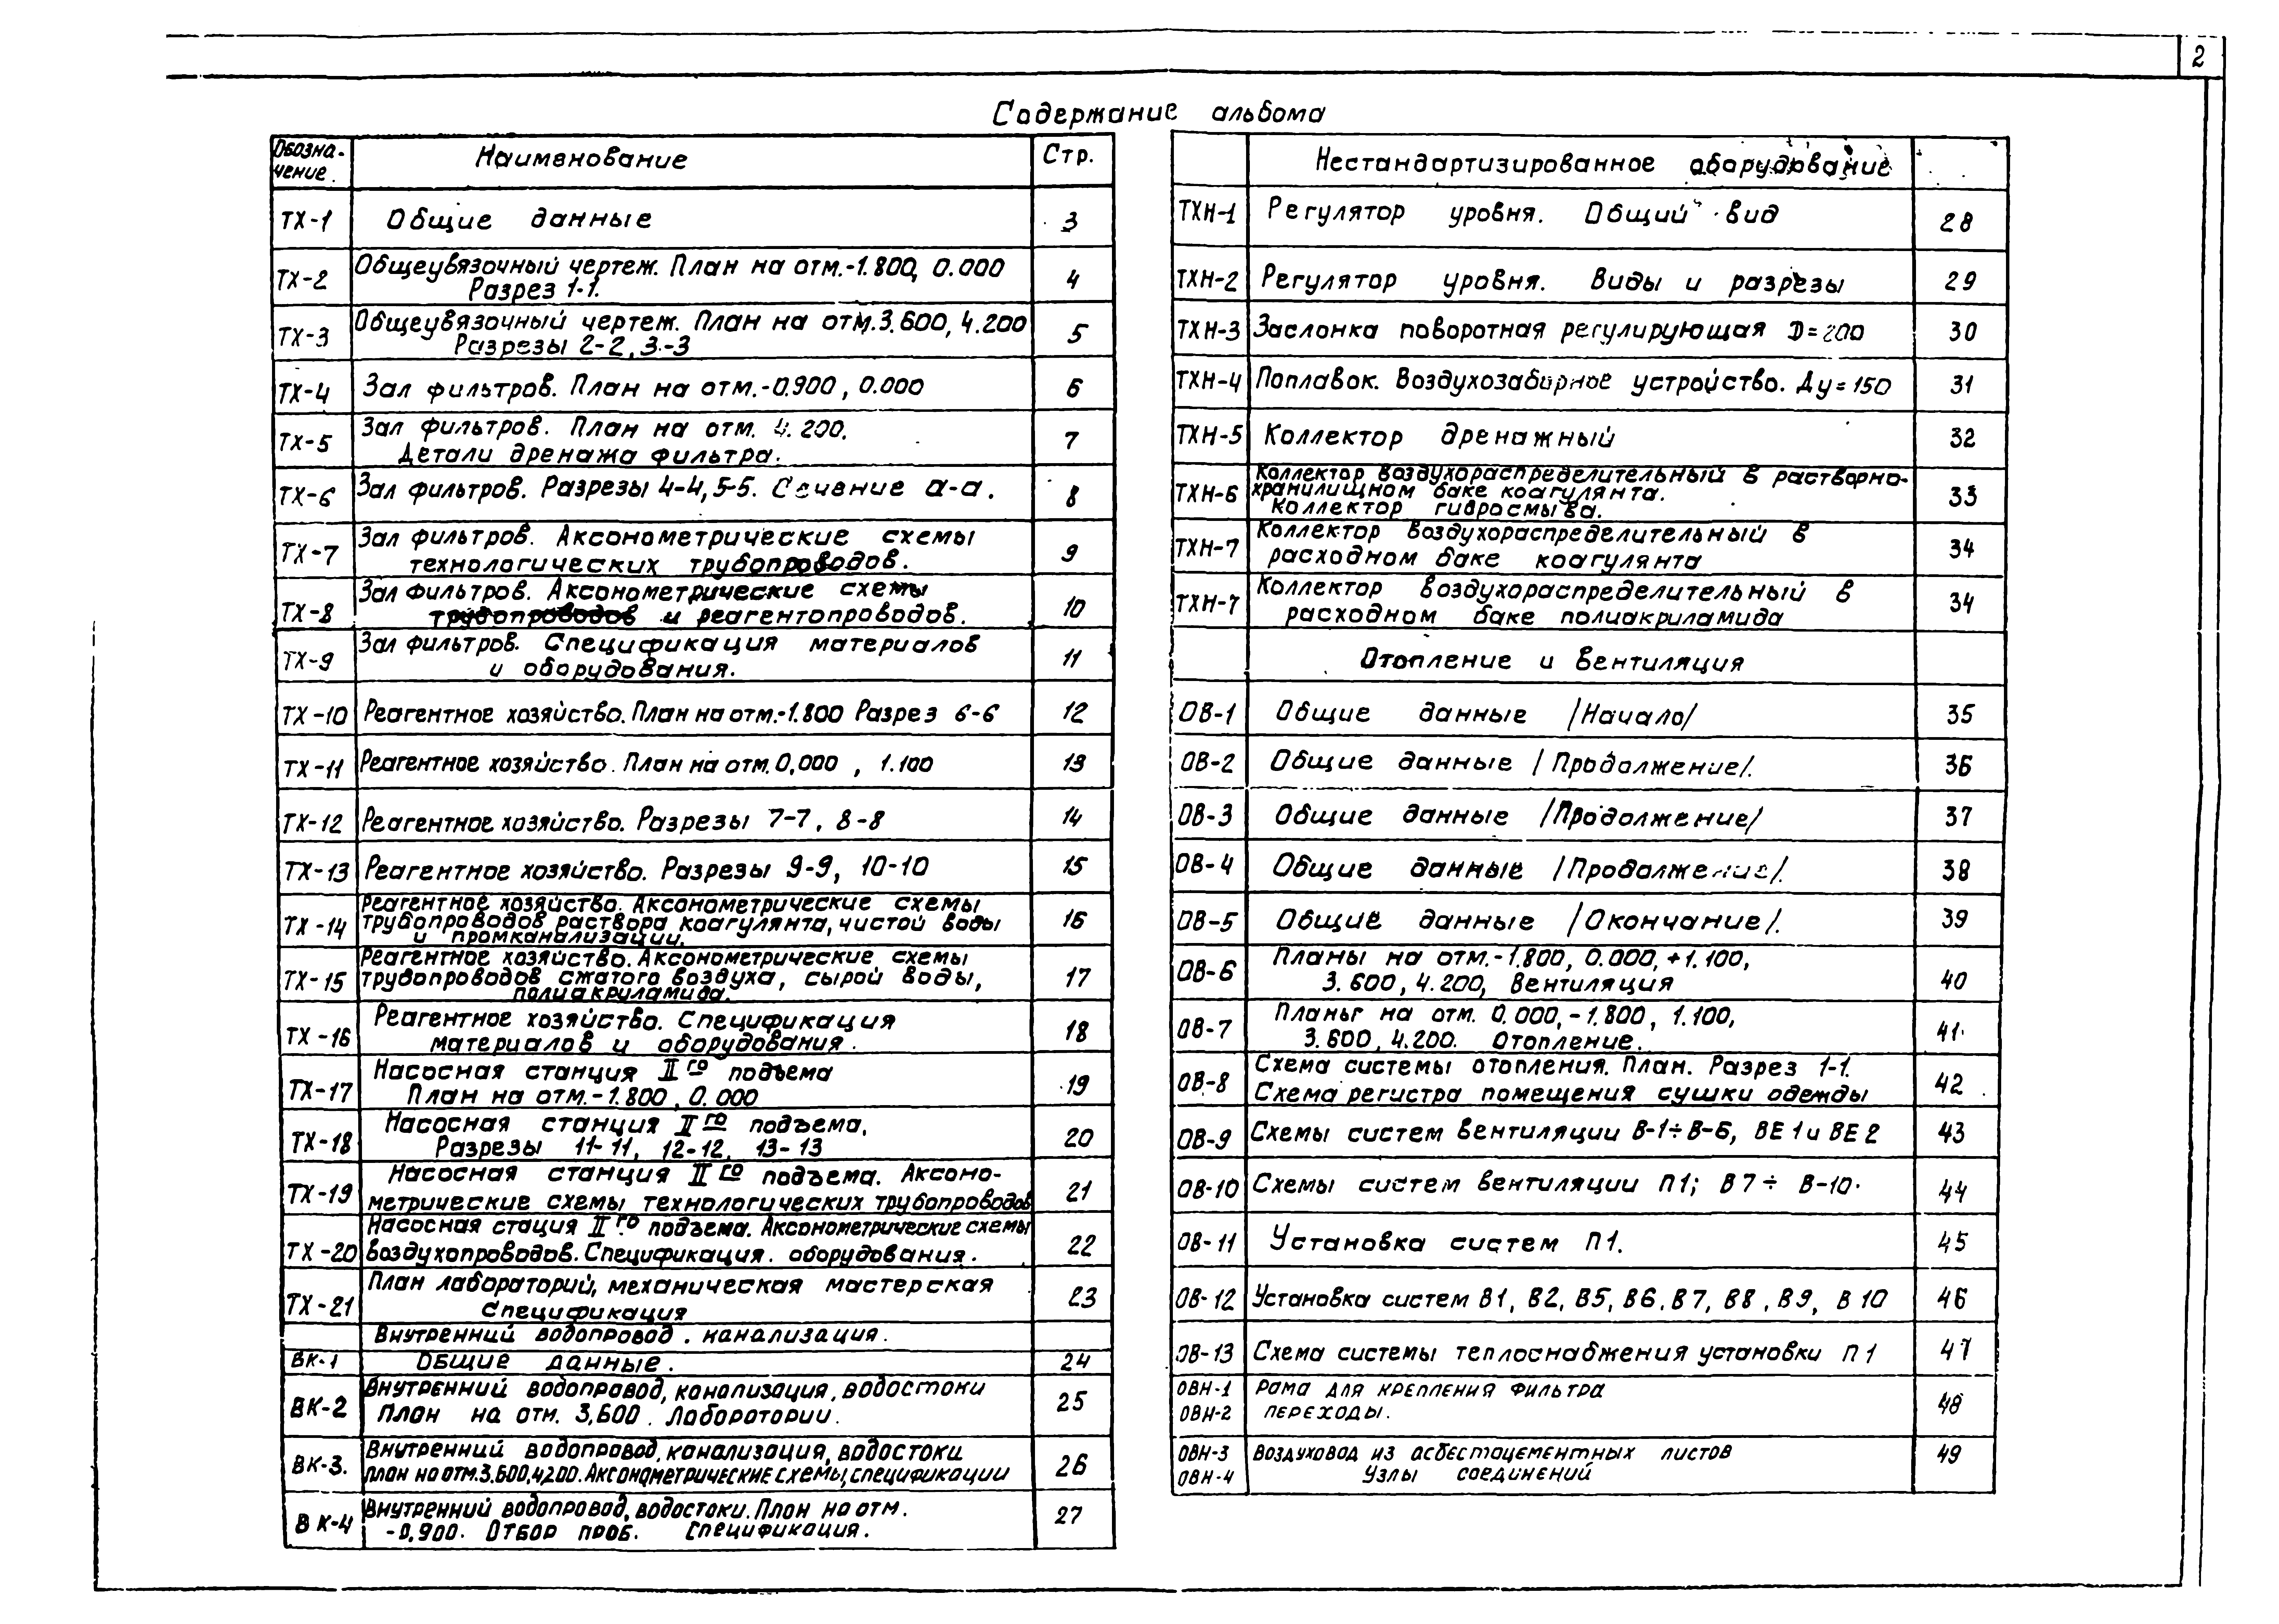 2
Содержание альбома
Обозна-
чение. Наименование Стр.
ТХ-1 Общие данные 3
ТХ-2 Общеувязочный чертеж. План на отм.-1.800, 0.000
Разрез 1-1. 4
ТХ-3 Общеувязочный чертеж. План на отм.3.600, 4.200
Разрезы 2-2, 3-3 5
ТХ-4 Зал фильтров. План на отм.-0.900, 0.000 6
ТХ-5 Зал фильтров. План на отм. 4.200.
Детали дренажа фильтра. 7
ТХ-6 Зал фильтров. Разрезы 4-4, 5-5. Сечение а-а. 8
ТХ-7 Зал фильтров. Аксонометрические схемы
технологических трубопроводов. 9
ТХ-8 Зал фильтров. Аксонометрические схемы
трубопроводов и реагентопроводов. 10
ТХ-9 Зал фильтров. Спецификация материалов
и оборудования. 11
ТХ-10 Реагентное хозяйство. План на отм.-1.800 Разрез 6-6 12
ТХ-11 Реагентное хозяйство. План на отм. 0,000 , 1.100 13
ТХ-12 Реагентное хозяйство. Разрезы 7-7, 8-8 14
ТХ-13 Реагентное хозяйство. Разрезы 9-9, 10-10 15
ТХ-14 Реагентное хозяйство. Аксонометрические схемы
трубопроводов раствора коагулянта, чистой воды
и промканализации. 16
ТХ-15 Реагентное хозяйство. Аксонометрические схемы
трубопроводов сжатого воздуха, сырой воды,
полиакриламида. 17
ТХ-16 Реагентное хозяйство. Спецификация
материалов и оборудования. 18
ТХ-17 Насосная станция II го подъема
План на отм.-1.800, 0.000 19
ТХ-18 Насосная станция II го подъема.
Разрезы 11-11, 12-12, 13-13 20
ТХ-19 Насосная станция II го подъема. Аксоно-
метрические схемы технологических трубопроводов 21
ТХ-20 Насосная стация II го подъема. Аксонометрические схемы
воздухопроводов. Спецификация. оборудования. 22
ТХ-21 План лабораторий, механическая мастерская
спецификация 23
Внутренний водопровод. канализация.
ВК-1 Общие данные. 24
ВК-2 Внутренний водопровод, канализация, водостоки
план на отм. 3,600. Лаборатории. 25
ВК-3. Внутренний водопровод, канализация, водостоки
план на отм.3,600,4200. Аксонометрические схемы, спецификации 26
ВК-4 Внутренний водопровод, водостоки. План на отм.
-0,900. Отбор проб. Спецификация. 27
Нестандартизированное оборудование
ТХН-1 Регулятор уровня. Общий вид 28
ТХН-2 Регулятор уровня. Виды и разрезы 29
ТХН-3 Заслонка поворотная регулирующая D=200 30
ТХН-4 Поплавок. Воздухозаборное устройство. Ду=150 31
ТХН-5 Коллектор дренажный 32
ТХН-6 Коллектор воздухораспределительный в растворно-
хранилищном баке коагулянта.
Коллектор гидросмыва. 33
ТХН-7 Коллектор воздухораспределительный в
расходном баке коагулянта 34
ТХН-7 Коллектор воздухораспределительный в
расходном баке полиакриламида 34
Отопление и вентиляция
ОВ-1 Общие данные /Начало/ 35
ОВ-2 Общие данные /Продолжение/. 36
ОВ-3 Общие данные /Продолжение/ 37
ОВ-4 Общие данные /Продолжение/. 38
ОВ-5 Общие данные /Окончание/. 39
ОВ-6 Планы на отм.-1.800, 0.000, +1.100,
3.600, 4.200, Вентиляция 40
ОВ-7 Планы на отм. 0.000, -1.800, 1.100,
3.600, 4.200. Отопление. 41
ОВ-8 Схема системы отопления. План. Разрез 1-1.
Схема регистра помещения сушки одежды 42
ОВ-9 Схемы систем вентиляции В-1÷В-6, ВЕ1 и ВЕ2 43
ОВ-10 Схемы систем вентиляции П1; В7÷ В-10. 44
ОВ-11 Установка систем П1. 45
ОВ-12 Установка систем В1, В2, В5, В6, В7, В8, В9, В10 46
ОВ-13 Схема системы теплоснабжения установки П1 47
ОВН-1 Рама для крепления фильтра
ОВН-2 переходы. 48
ОВН-3 Воздуховод из асбестоцементных листов 49
ОВН-4 Узлы соединений